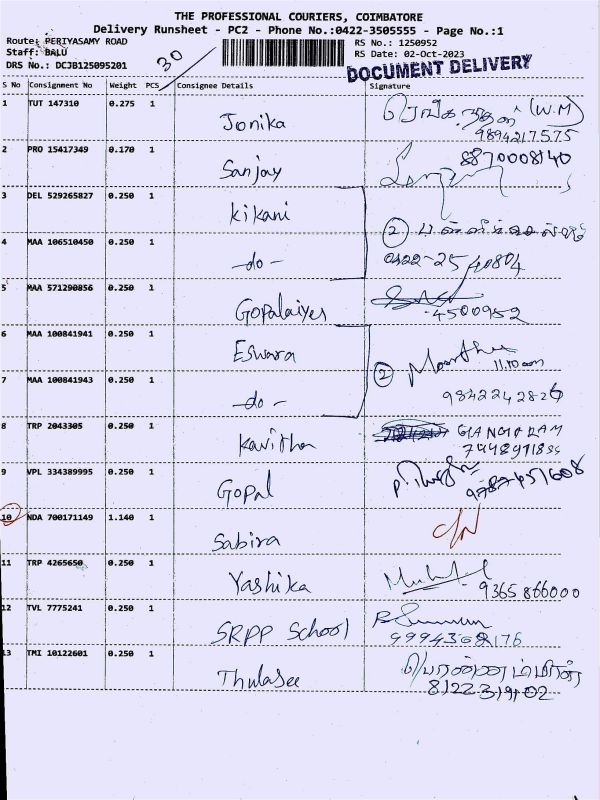 THE PROFESSIONAL COURIERS, COIMBATORE
Delivery Runsheet - PC2 - Phone No.:0422-3505555 - Page No.:1
Route: PERIYASAMY ROAD
RS No.: 1250952
Staff: BALU
RS Date: 02-Oct-2023
DRS No.: DCJB125095201
30
DOCUMENT DELIVERY
S No Consignment No Weight PCS Consignee Details Signature
1 TUT 147310 0.275 1 Jonika (W.M)
9894217575
2 PRO 15417349 0.170 1 Sanjay 8870008140
3 DEL 529265827 0.250 1 Kikani
4 MAA 106510450 0.250 1 -do- 2
0422-2540804
5 MAA 571290856 0.250 1 Gopalaiyer
4500952
6 MAA 100841941 0.250 1 Eswara
11.10 am
7 MAA 100841943 0.250 1 -do- 2
9842242826
8 TRP 2043305 0.250 1 Kavitha
9 VPL 334389995 0.250 1 Gopal
10 NDA 700171149 1.140 1 Sabira
11 TRP 4265650 0.250 1 Yashika
9365866000
12 TVL 7775241 0.250 1 SRPP School
13 TMI 10122601 0.250 1 Thulasee
8122319102